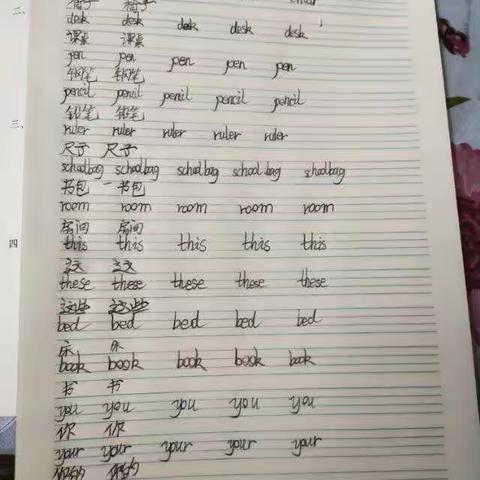 二、
椅子 椅子
desk desk desk desk desk
课桌 课桌
pen pen pen pen pen
钢笔 钢笔
pencil pencil pencil pencil pencil
铅笔 铅笔
三、
ruler ruler ruler ruler ruler
尺子 尺子
schoolbag schoolbag schoolbag schoolbag schoolbag
书包 书包
room room room room room
房间 房间
四
this this this this this
这 这
these these these these these
这些 这些
bed bed bed bed bed
床 床
book book book book book
书 书
you you you you you
你 你
your your your your your
你的 你的